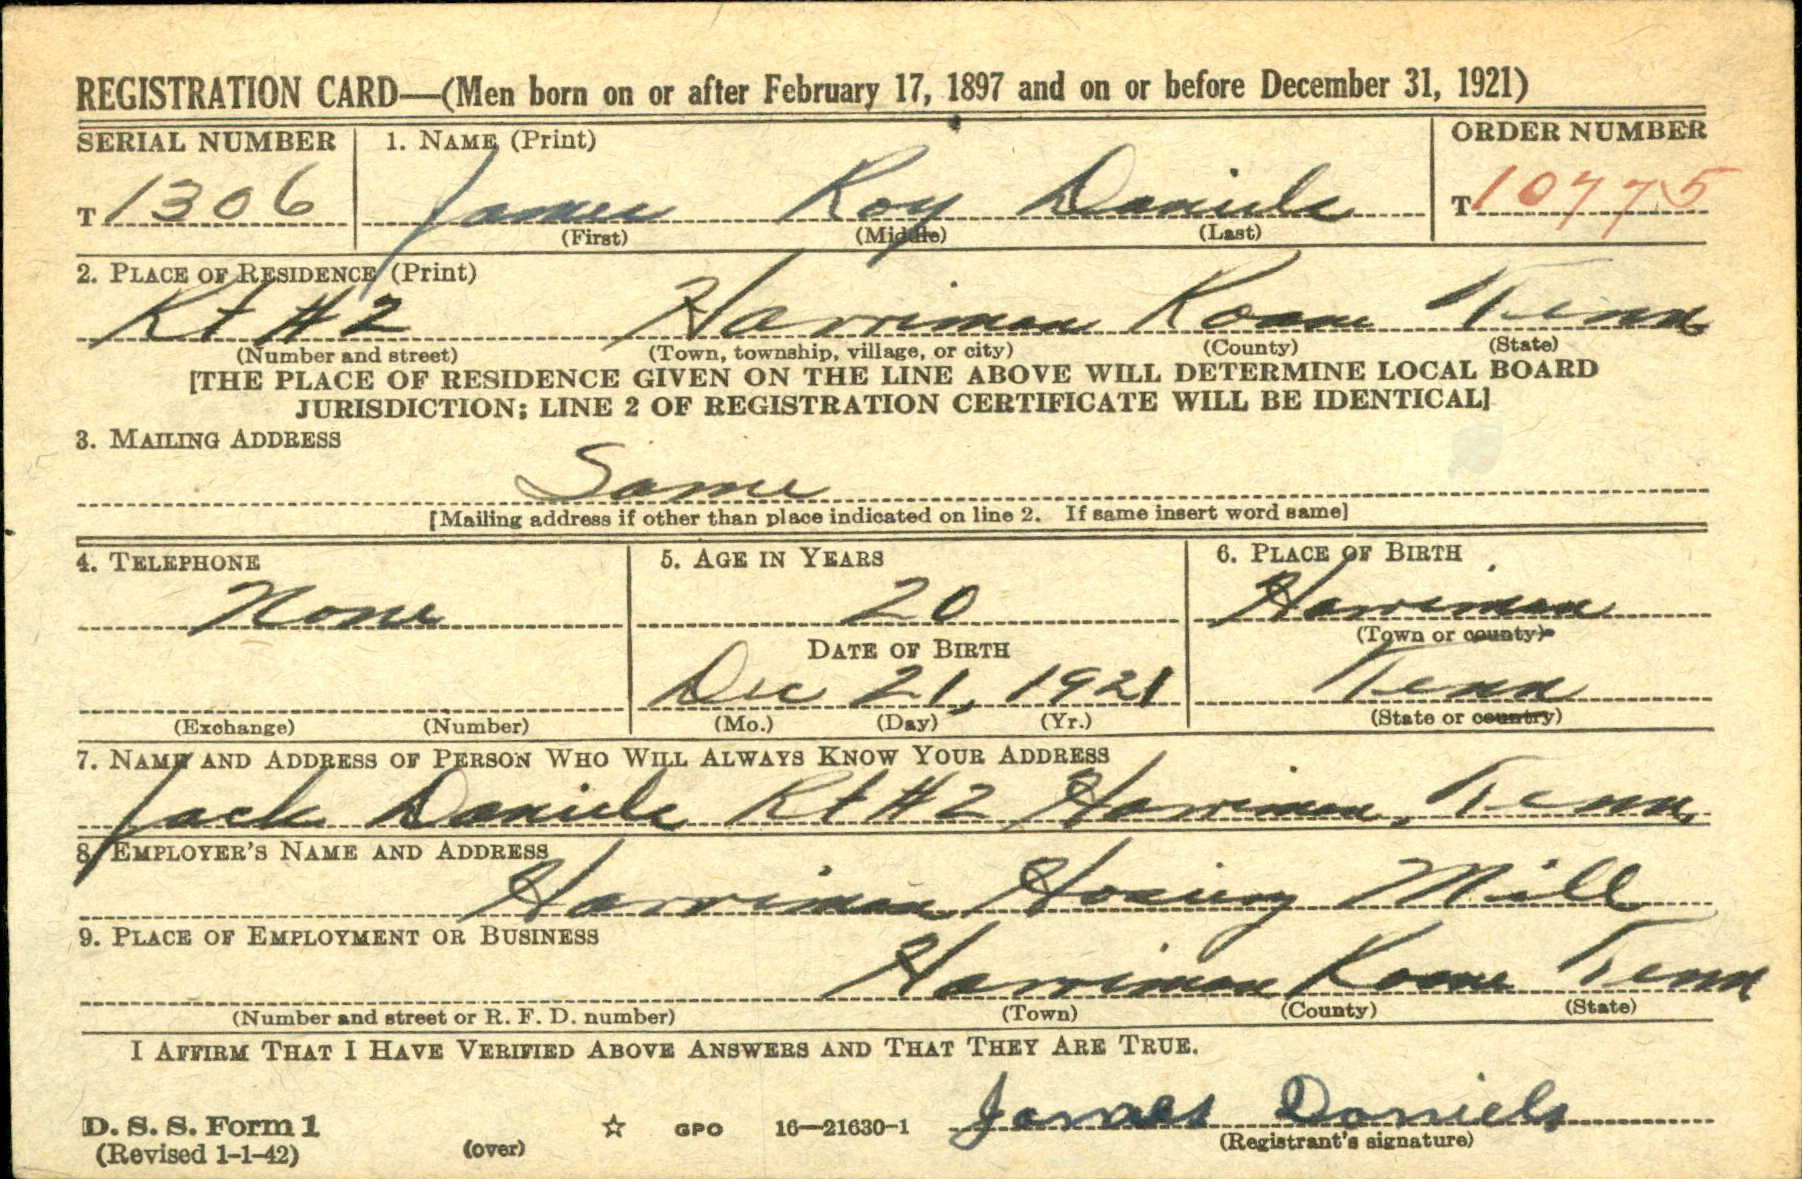 REGISTRATION CARD—(Men born on or after February 17, 1897 and on or before December 31, 1921)
SERIAL NUMBER 1. NAME (Print) ORDER NUMBER
T 1306 James Roy Daniels T 10775
(First) (Middle) (Last)
2. PLACE OF RESIDENCE (Print)
Rt #2 Harriman Roane Tenn.
(Number and street) (Town, township, village, or city) (County) (State)
[THE PLACE OF RESIDENCE GIVEN ON THE LINE ABOVE WILL DETERMINE LOCAL BOARD
JURISDICTION; LINE 2 OF REGISTRATION CERTIFICATE WILL BE IDENTICAL]
3. MAILING ADDRESS
Same
[Mailing address if other than place indicated on line 2. If same insert word same]
4. TELEPHONE 5. AGE IN YEARS 6. PLACE OF BIRTH
None 20 Harriman
(Town or county)
DATE OF BIRTH
Dec 21, 1921 Tenn
(Exchange) (Number) (Mo.) (Day) (Yr.) (State or country)
7. NAME AND ADDRESS OF PERSON WHO WILL ALWAYS KNOW YOUR ADDRESS
Jack Daniels Rt #2 Harriman, Tenn.
8. EMPLOYER'S NAME AND ADDRESS
Harriman Hosiery Mill
9. PLACE OF EMPLOYMENT OR BUSINESS
Harriman Roane Tenn
(Number and street or R. F. D. number) (Town) (County) (State)
I AFFIRM THAT I HAVE VERIFIED ABOVE ANSWERS AND THAT THEY ARE TRUE.
James Daniels
D. S. S. Form 1 GPO 16—21630-1 (Registrant's signature)
(Revised 1-1-42) (over)